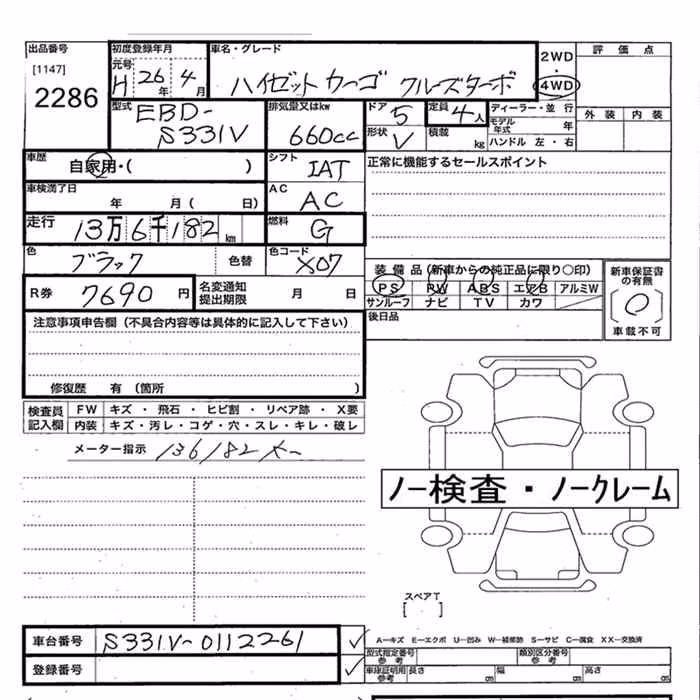 出品番号 初度登録年月 車名・グレード 2WD 評価点
[1147] 元号 H 26年 4月 ハイゼット カーゴ クルーズターボ ・ 4WD
2286 型式 EBD-S331V 排気量又はkw 660cc ドア 5 定員 4人 ディーラー・並行 外装 内装
形状 V 積載 kg モデル年式 年
ハンドル 左・右
車歴 自家用・( ) シフト IAT 正常に機能するセールスポイント
車検満了日 年 月( 日) AC AC
走行 13万6千182km 燃料 G
色 ブラック 色替 色コード X07
装備品(新車からの純正品に限り〇印) 新車保証書の有無
R券 7690円 名変通知提出期限 月 日 PS PW ABS エアB アルミW
サンルーフ ナビ TV カワ 車載不可
注意事項申告欄(不具合内容等は具体的に記入して下さい) 後日品
修復歴 有(箇所 )
検査員記入欄 FW キズ・飛石・ヒビ割・リペア跡・X要
内装 キズ・汚レ・コゲ・穴・スレ・キレ・破レ
メーター指示 136182
ノー検査・ノークレーム
スペアT
[ ]
車台番号 S331V-0112261 A－キズ E－エクボ U－凹み W－補修跡 S－サビ C－腐食 XX－交換済
型式指定番号 参考 類別区分番号 参考
登録番号 車庫証明用 参考 長さ cm 幅 cm 高さ cm